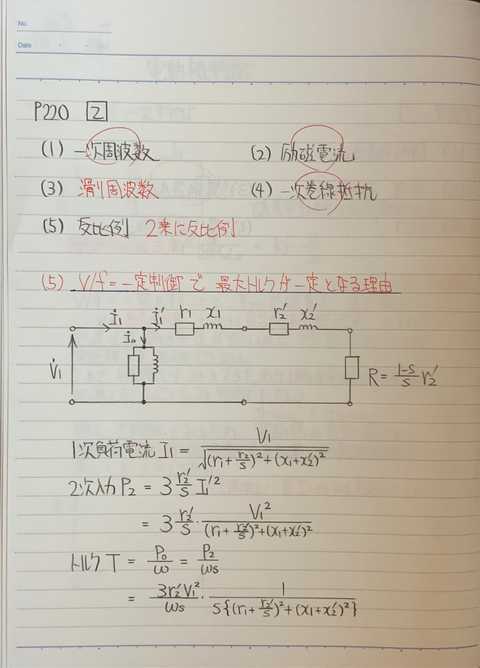 No.
Date
P220 2
(1) 一次周波数 (2) 励磁電流
(3) 滑り周波数 (4) 一次巻線抵抗
(5) 反比例 2乗に反比例
(5) V/f=一定制御で 最大トルクが一定となる理由
İ₁ İ₁' r₁ x₁ r₂' x₂'
İ₀
V̇₁
R = (1-s)/s r₂'
1次負荷電流 İ₁ = V₁/√((r₁+r₂'/s)²+(x₁+x₂')²)
2次入力 P₂ = 3 r₂'/s I₁'²
= 3 r₂'/s · V₁²/((r₁+r₂'/s)²+(x₁+x₂')²)
トルク T = P₀/ω = P₂/ωs
= 3r₂'V₁²/ωs · 1/(s{(r₁+r₂'/s)²+(x₁+x₂')²})